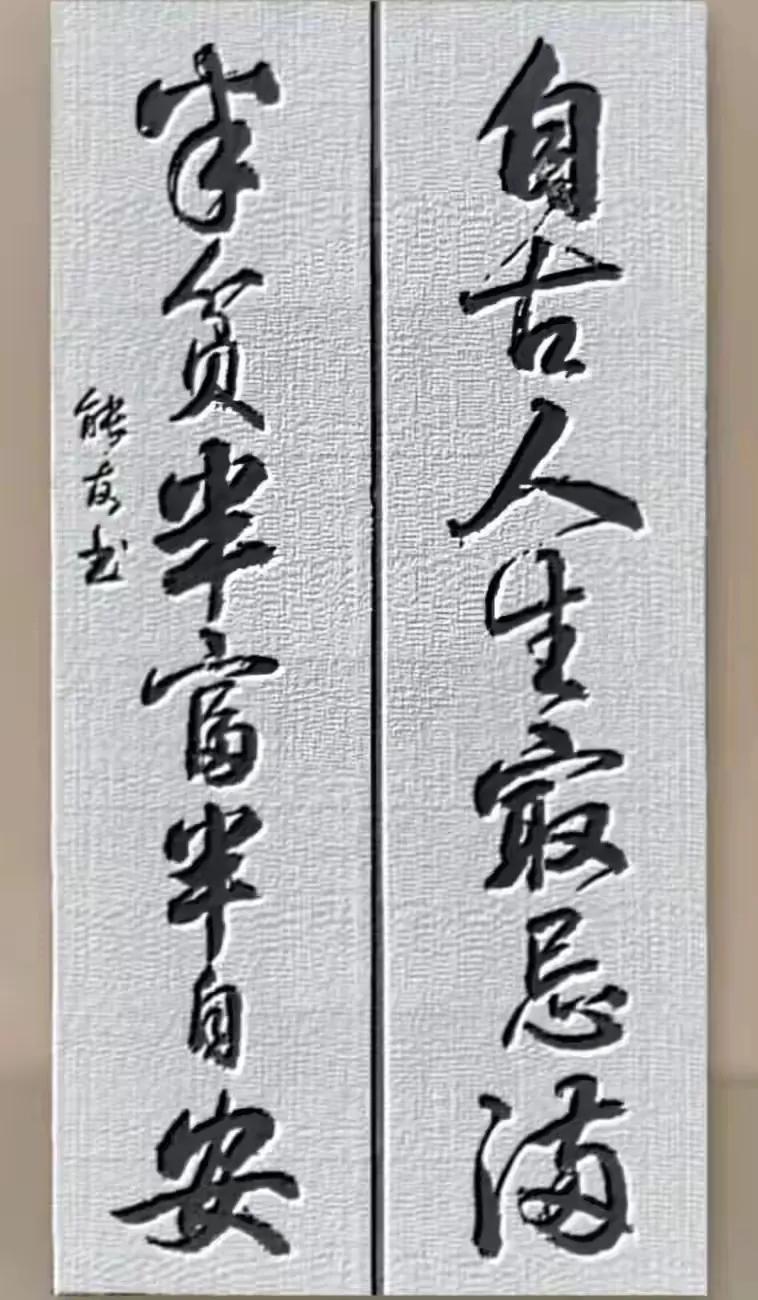 自古人生最忌满
半贫半富半自安
能友书